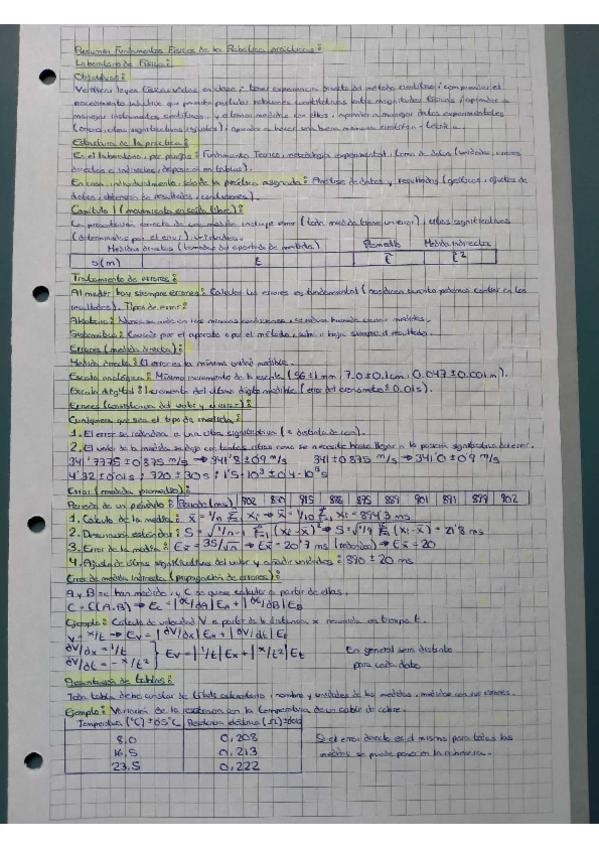 Resumen Fundamentos Físicos de la Robótica prácticas:
Laboratorio de Física:
Objetivos:
Verificar leyes físicas vistas en clase; tener experiencia directa del método científico; comprender el
procedimiento inductivo que permite postular relaciones cuantitativas entre magnitudes físicas; aprender a
manejar instrumentos científicos, y a tomar medidas con ellos, aprender a manejar datos experimentales
(errores, cifras significativas, ajustes); aprender a hacer una buena memoria científico-técnica.
Estructura de la práctica:
En el laboratorio, por parejas: Fundamento Teórico, metodología experimental, toma de datos (unidades, errores
directos e indirectos, disposición en tablas).
En casa, individualmente, solo de la práctica asignada: Análisis de datos y resultados (gráficos, ajustes de
datos, obtención de resultados, conclusiones).
Capítulo 1 (movimiento en caída libre):
La presentación correcta de una medida incluye error (toda medida tiene un error), cifras significativas
(determinadas por el error) y unidades.
Medidas directas (tomadas del aparato de medida) Promedio Medida indirecta
s(m) t t̄ t̄²
Tratamiento de errores:
Al medir hay siempre errores: Calcular los errores es fundamental ( cuanto podemos confiar en los
resultados). Tipos de error:
Absoluto: Nunca se mide en las mismas condiciones, se reduce haciendo varias medidas.
Sistemático: Causado por el aparato o por el método, sube o baja siempre el resultado.
Errores (medida directa):
Medida directa: El error es la mínima unidad medible.
Escala analógica: Mínimo incremento de la escala (96±1mm, 7.0±0.1cm, 0.047±0.001m).
Escala digital: Incremento del último dígito medible (error del cronómetro ±0.01s).
Errores (consistencia del valor y el error):
Cualquiera que sea el tipo de medida:
1. El error se redondea a una cifra significativa (≠ distinta de cero).
2. El valor de la medida se deja con tantas cifras como se necesite hasta llegar a la posición significativa del error.
341'7775 ± 0'875 m/s → 341'8 ± 0'9 m/s 341 ± 0'875 m/s → 341'0 ± 0'9 m/s
4'32 ± 0'01 s; 720 ± 30 s; 1'5·10³ ± 0'4·10³ s
Error (medida promedio):
Periodo de un péndulo: Periodo (ms) 902 850 915 876 875 889 901 891 899 902
1. Calculo de la media: x̄ = 1/n Σ xi → x̄ = 1/10 Σ xi = 894'3 ms
2. Desviación estándar: S = √1/n-1 Σ (xi-x̄)² → S = √1/9 Σ (xi-x̄) = 21'8 ms
3. Error de la media: Ex̄ = 3S/√n → Ex̄ = 20'7 ms (redondeo) → Ex̄ = 20
4. Ajuste de cifras significativas del valor y añadir unidades: 890 ± 20 ms
Error de medida indirecta (propagación de errores):
A y B se han medido, y C se quiere calcular a partir de ellas.
C = C(A,B) → Ec = |∂C/∂A| EA + |∂C/∂B| EB
Ejemplo: Calculo de velocidad V a partir de la distancia x recorrida en tiempo t.
V = x/t → Ev = |∂V/∂x| Ex + |∂V/∂t| Et
∂V/∂x = 1/t
∂V/∂t = -x/t² } Ev = |1/t| Ex + |x/t²| Et
En general será distinto
para cada dato
Presentación de tablas:
Toda tabla debe constar de título , nombre y unidades de las medidas, medidas con sus errores.
Ejemplo: Variación de la resistencia con la temperatura de un cable de cobre.
Temperatura (°C) ±0.5°C Resistencia eléctrica (Ω)
8,0 0,208
16,5 0,213
23,5 0,222
Si el error directo es el mismo para todas las
medidas se puede poner en la cabecera.